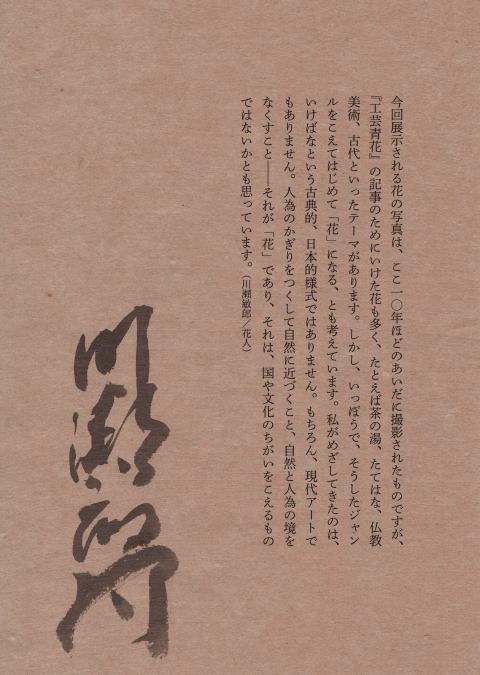 今回展示される花の写真は、ここ一〇年ほどのあいだに撮影されたものですが、
『工芸青花』の記事のためにいけた花も多く、たとえば茶の湯、たてはな、仏教
美術、古代といったテーマがあります。しかし、いっぽうで、そうしたジャン
ルをこえてはじめて「花」になる、とも考えています。私がめざしてきたのは、
いけばなという古典的、日本的様式ではありません。もちろん、現代アートで
もありません。人為のかぎりをつくして自然に近づくこと、自然と人為の境を
なくすこと——それが「花」であり、それは、国や文化のちがいをこえるもの
ではないかとも思っています。（川瀬敏郎／花人）
川瀬敏郎